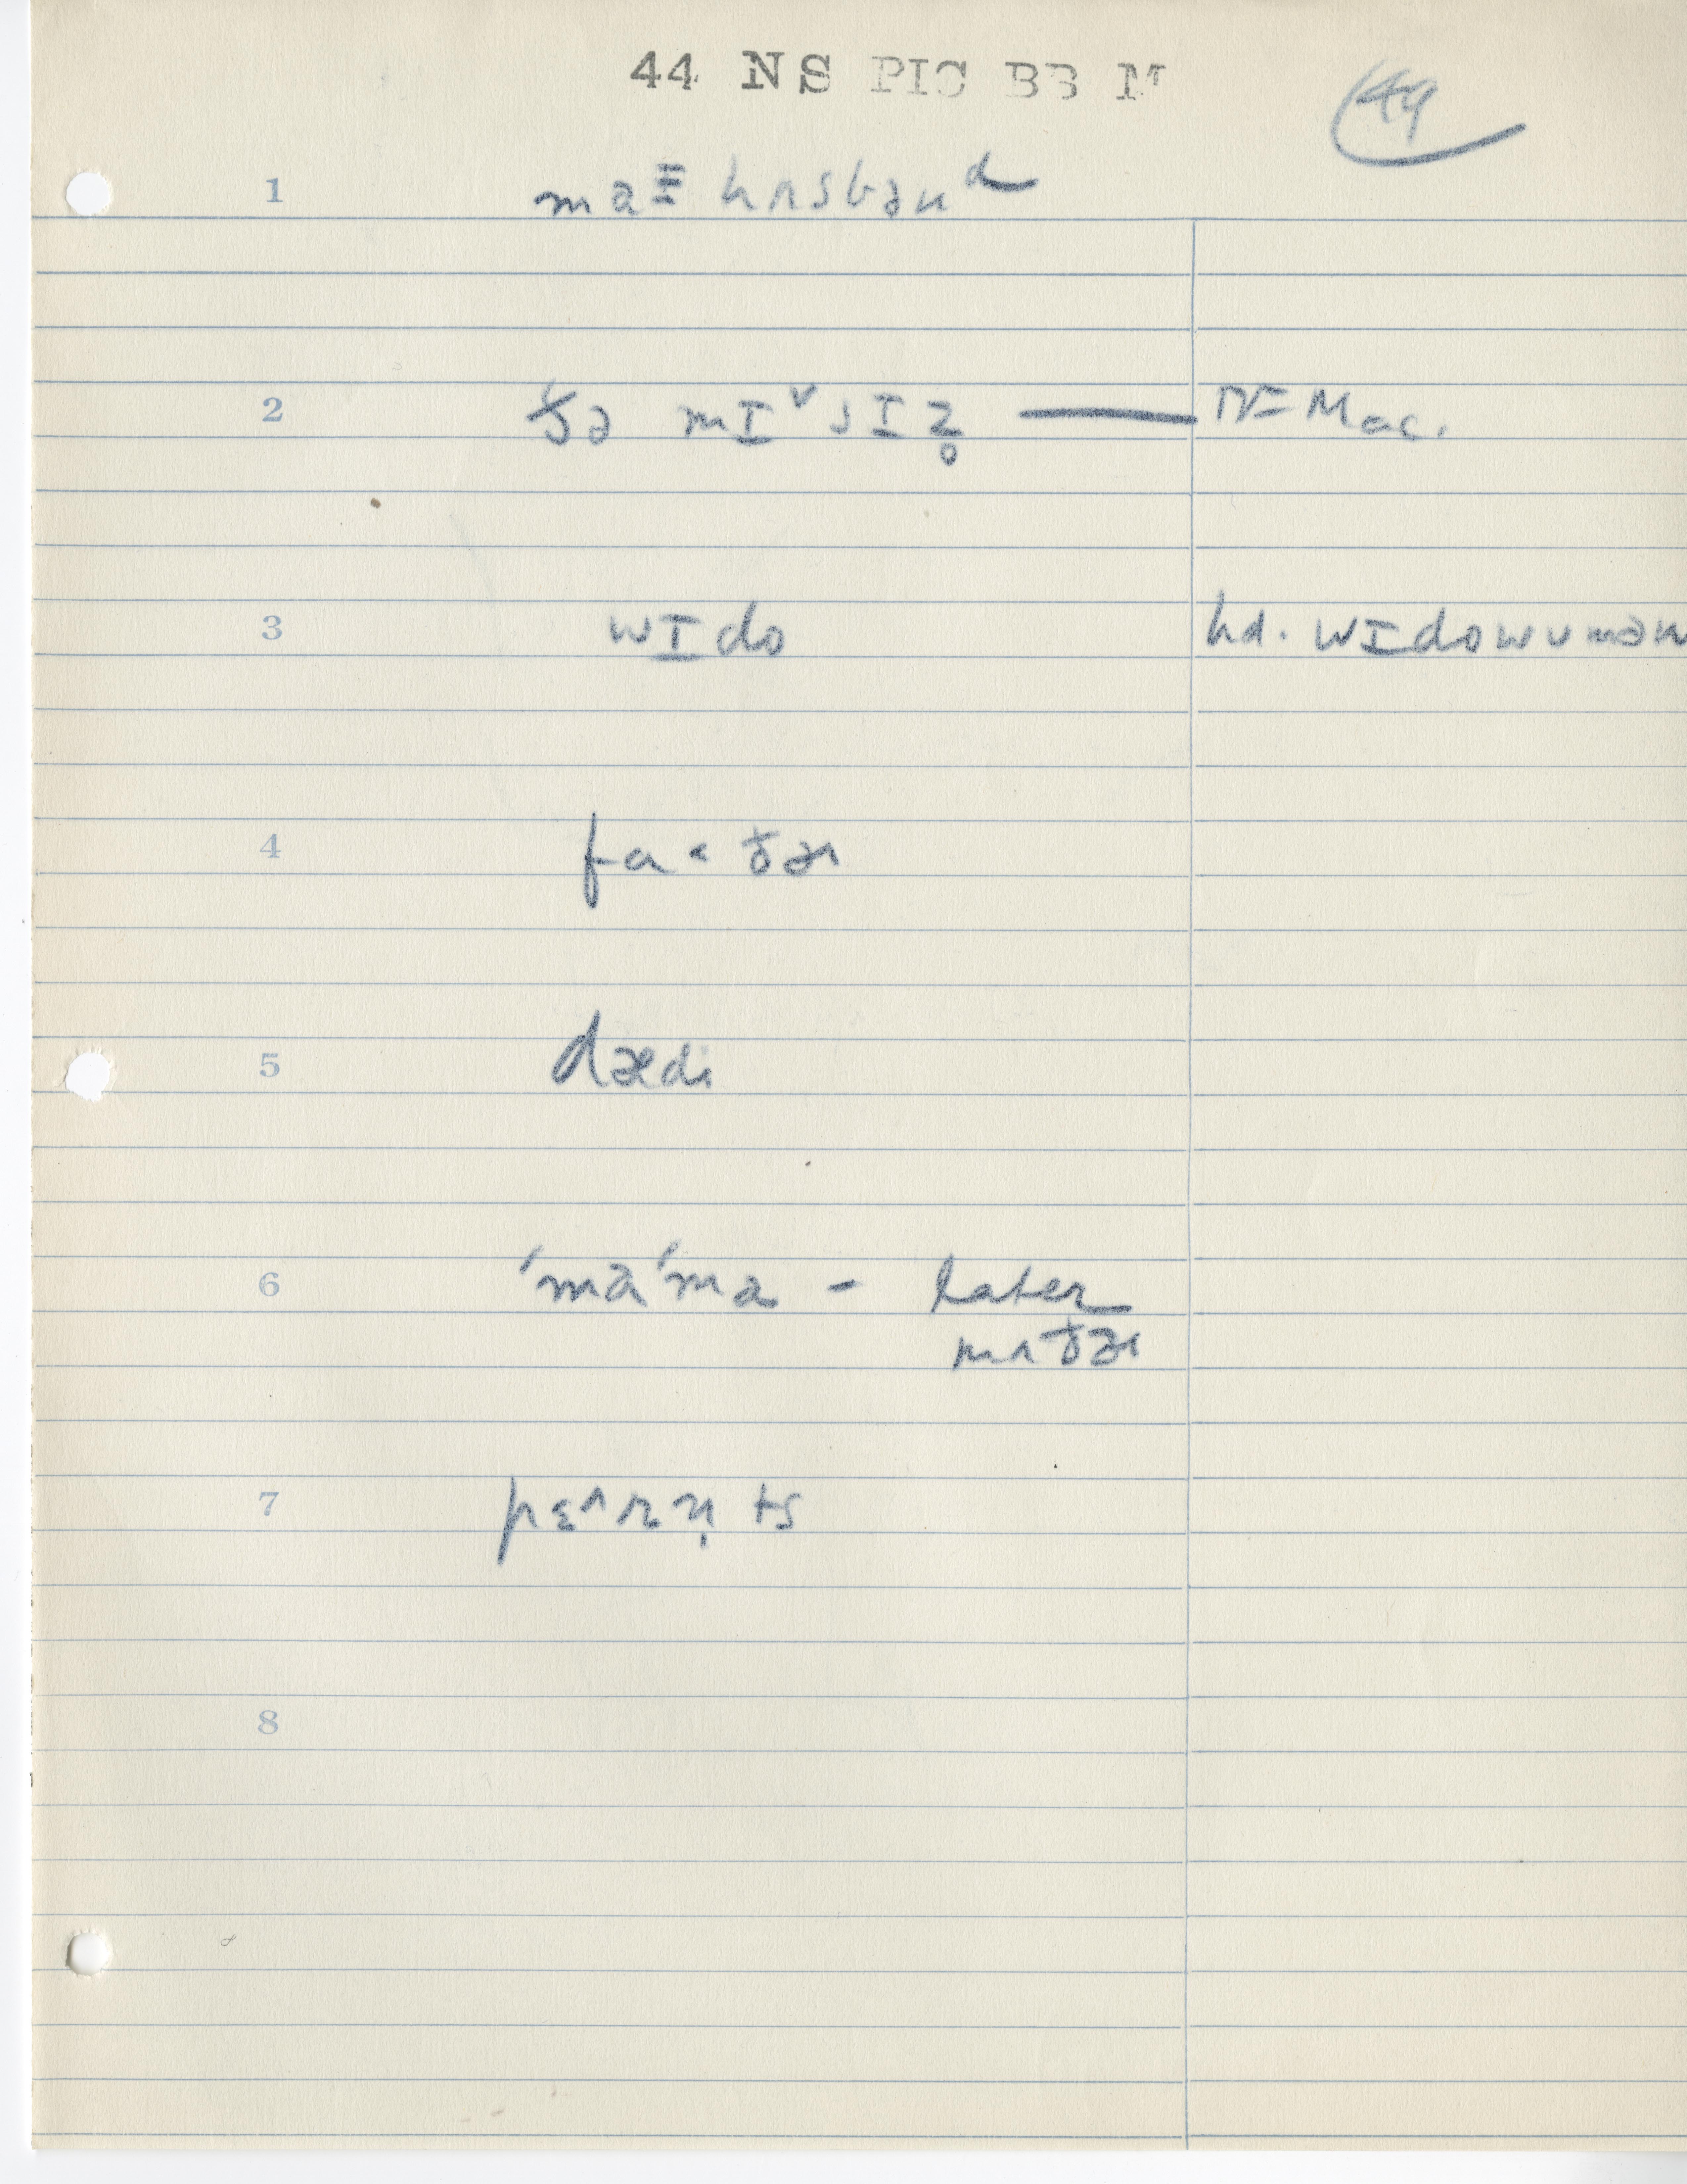 44 NS PIC BB M
44
1 maɪ hʌsbənᵈ
2 ðə mɪ˅sɪz̥ — N= Mac.
3 wɪdo hd. wɪdowumən
4 fa˂ðɚ
5 dædi
6 ˈmaˈma - later
mʌðɚ
7 pɛ˄rn̩ts
8